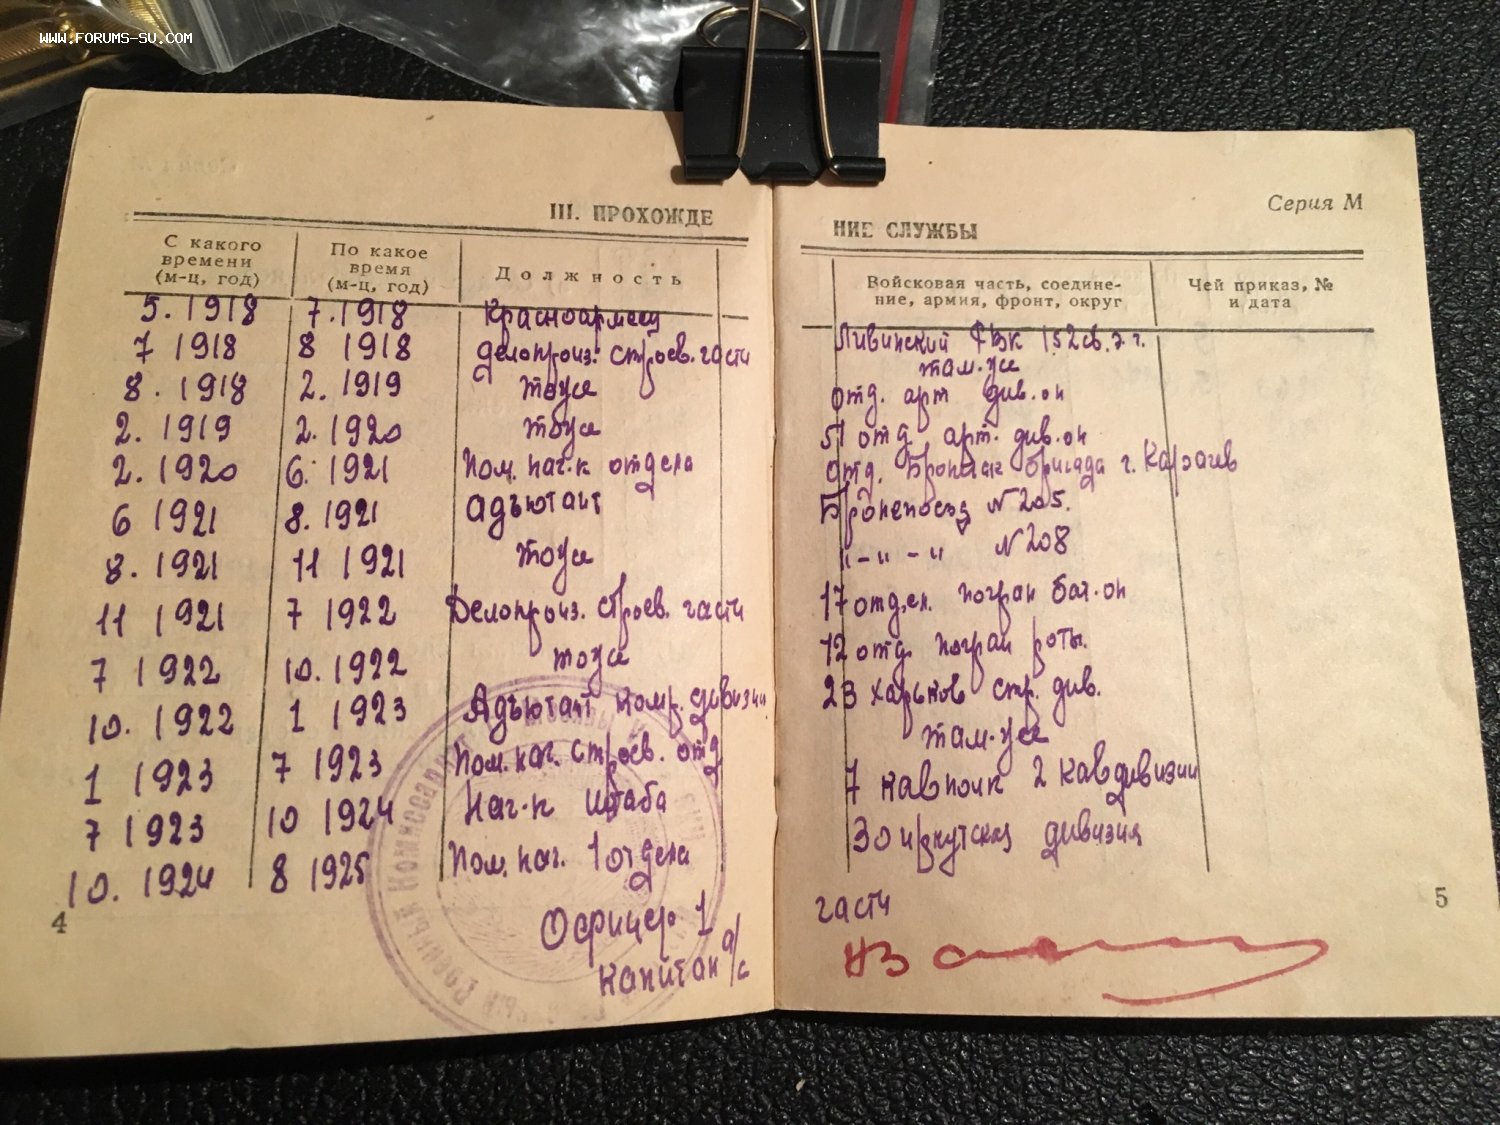 WWW.FORUMS-SU.COM
III. ПРОХОЖДЕ
С какого времени (м-ц, год)
По какое время (м-ц, год)
Должность
5. 1918 7. 1918 Красноармеец
7 1918 8 1918 Делопроиз. строев. части
8. 1918 2. 1919 тоже
2. 1919 2. 1920 тоже
2. 1920 6. 1921 Пом. нач-к отдела
6 1921 8. 1921 Адъютант
8. 1921 11 1921 тоже
11 1921 7 1922 Делопроиз. строев. части
7 1922 10. 1922 тоже
10. 1922 1 1923 Адъютант ком. дивизии
1 1923 7 1923 Пом. нач. строев. отд
7 1923 10 1924 Нач-к штаба
10. 1924 8 1925 Пом. нач. 1 отдела
Офицер 1
капитан а/с
4
Серия М
НИЕ СЛУЖБЫ
Войсковая часть, соединение, армия, фронт, округ
Чей приказ, № и дата
Ливинский 152
там-же
отд. арт див-он
51 отд. арт. див-он
отд. бригада г. Карачев
Бронепоезд № 205.
"-"-" № 208
17 погран бат-он
12 отд. погран роты.
23 Харьков стр. див.
там-же
7 кавполк 2 кавдивизии
30 иркутская дивизия
части
НЗ
5